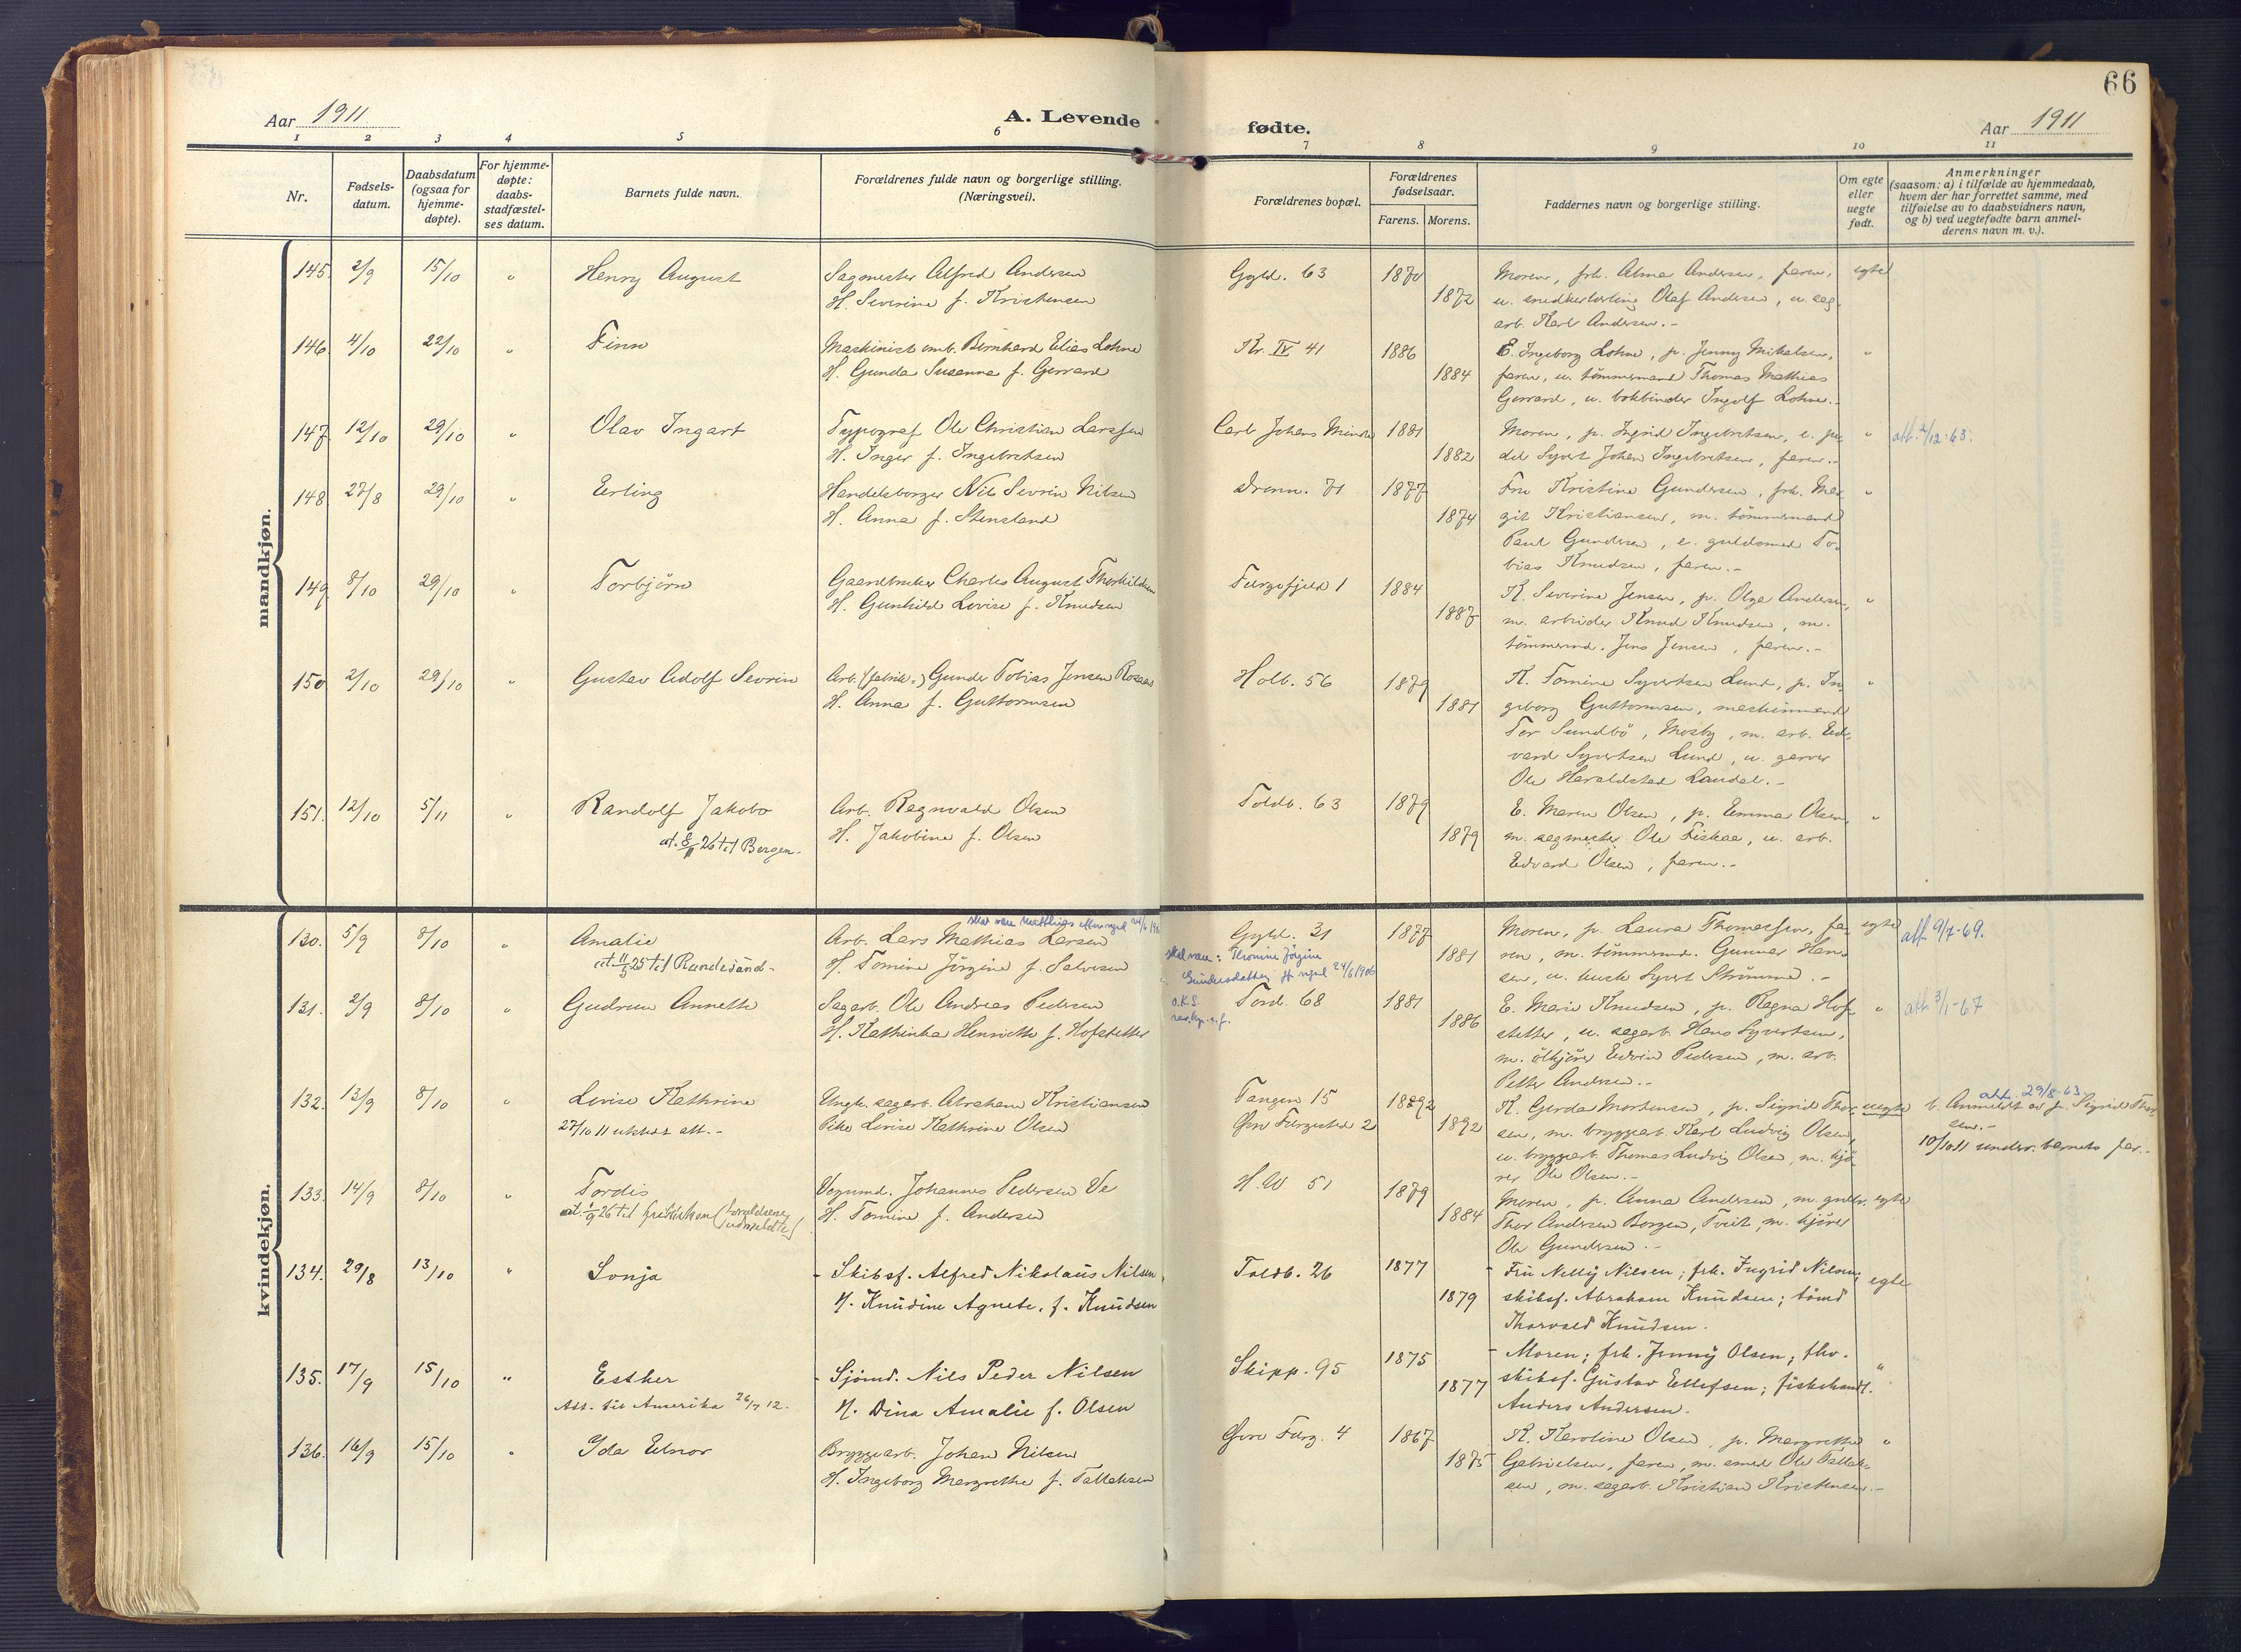 66
Aar 1911
A. Levende
fødte.
Aar 1911
1 2 3 4 5 6 7 8 9 10 11
Nr.
Fødselsdatum.
Daabsdatum (ogsaa for hjemmedøpte).
For hjemmedøpte: daabsstadfæstelses datum.
Barnets fulde navn.
Forældrenes fulde navn og borgerlige stilling. (Næringsvei).
Forældrenes bopæl.
Forældrenes fødselsaar.
Farens. Morens.
Faddernes navn og borgerlige stilling.
Om egte eller uegte født.
Anmerkninger
(saasom: a) i tilfælde av hjemmedaab,
hvem der har forrettet samme, med
tilføielse av to daabsvidners navn,
og b) ved uegtefødte barn anmel-
derens navn m. v.).
mandkjøn.
145. 2/9 15/10 " Henry August
Sagmester Alfred Andersen
H. Severine f. Kristensen
Gyld. 63 1870 1872
Moren, frk. Alma Andersen, faren,
u. snedkerlærling Olaf Andersen, u. sag-
arb. Karl Andersen.-
egte
146. 4/10 22/10 " Finn
Maskinist omb. Bernhard Elias Lohne
H. Gunda Susanna f. Gerrard
Kr. IV 41 1886 1884
E. Ingeborg Lohne, p. Jenny Mikalsen,
faren, u. tømmermand Thomas Mathias
Gerrard, u. bokbinder Ingolf Lohne.-
"
147. 12/10 29/10 " Olav Ingart
Typograf Ole Christian Larssen
H. Inger f. Ingebretsen
Carl Johans Minde 1881 1882
Moren, p. Ingrid Ingebretsen, e. pe-
del Syvert Johan Ingebretsen, faren.-
"
att. 2/12-63.
148. 27/8 29/10 " Erling
Handelsborger Nils Sevrin Nilsen
H. Anna f. Stensland
Dronn. 71 1877 1874
Fru Kristine Gundersen, frk. Mar-
git Kristiansen, m. tømmermand
Paul Gundersen, e. guldsmed To-
bias Knudsen, faren.-
"
149. 8/10 29/10 " Torbjørn
Gaardbruker Charles August Thorkildsen
H. Gunhild Lovise f. Knudsen
Farzefjeld 1 1884 1887
K. Severine Jensen, p. Olga Andersen,
m. arbeider Knud Knudsen, m.
tømmermd. Jens Jensen, faren.-
"
150. 2/10 29/10 " Gustav Adolf Sevrin
Arb. (fabrik-) Gunder Tobias Jensen Rosaas
H. Anna f. Guttormsen
Holb. 56 1879 1881
K. Tomine Syvertsen Lund, p. In-
geborg Guttormsen, maskinmand
Tor Sundbø, Mosby, m. arb. Ed-
vard Syvertsen Lund, u. garver
Ole Haraldstad Laudal.-
"
151. 12/10 5/11 " Randolf Jakobo
at. 8/11 26 til Bergen-
Arb. Ragnvald Olsen
H. Jakobine f. Olsen
Toldb. 63 1879 1879
E. Maren Olsen, p. Emma Olsen,
m. sagmester Ole Fiskaa, u. arb.
Edvard Olsen, faren.-
"
kvindekjøn.
130. 5/9 8/10 " Amalie
at 11/5 25 til Randesund-
Arb. Lars Mathias Larsen
H. Tomine Jørgine f. Salvesen
skal være: Thomine Jørgine
Gundersdatter jf ngul 24/6 1906
o.K.S.
res.kp. s.f.
Gyld. 31 1877 1881
Moren, p. Laura Thomassen, fa-
ren, m. tømmermd. Gunnar Han-
sen, u. kusk Syvert Strømme.-
egte
att. 9/7-69.
131. 2/9 8/10 " Gudrun Annette
Sagarb. Ole Andreas Pedersen
H. Kathinka Henriette f. Hofstetter
Tord. 68 1881 1886
E. Marie Knudsen, p. Ragna Hof-
stetter, u. sagarb. Hans Syvertsen,
m. ølkjører Edvin Pedersen, m. arb.
Petter Andersen.-
"
att. 3/1-67
132. 13/9 8/10 " Lovise Kathrine
27/10 11 utstedt att.-
Ungk. sagarb. Abraham Kristiansen
Pike Lovise Kathrine Olsen
Tangen 15
Øvre Farzested 2
1892 1892
K. Gerda Mortensen, p. Sigrid Thor-
sen, m. bryggearb. Karl Ludvig Olsen,
u. bryggearb. Thomas Ludvig Olsen, m. kjø-
rer Ole Olsen.-
uegte
att. 29/8-63
b. Anmeldt av p. Sigrid Thor-
sen.-
10/10 11 underr. barnets far.-
133. 14/9 8/10 " Tordis
at. 1/9 26 til frikirken (forældrene udmeldte)
Vognmd. Johannes Pedersen Ve
H. Tomine f. Andersen
H.W. 51 1879 1884
Moren, p. Anna Andersen, m. grdbr.
Thor Andersen Borgen, Tveit, m. kjører
Ole Gundersen.-
egte
134. 29/8 13/10 " Sonja
- Skibsf. Alfred Nikolaus Nilsen,
H. Knudine Agnete, f. Knudsen
Toldb. 26 1877 1879
- Fru Nelly Nilsen; frk. Ingrid Nilsen;
skibsf. Abraham Knudsen; tømd
Thorvald Knudsen.
egte
135. 17/9 15/10 " Esther
Att. til Amerika 26/7 12.
- Sjømd. Nils Peder Nilsen
H. Dina Amalie f. Olsen
Skipp. 95 1875 1877
- Moren; frk. Jenny Olsen; fhv.
skibsf. Gustav Ellefsen; fiskehandl.
Anders Andersen.
"
136. 16/9 15/10 " Ida Elnor
Bryggearb. Johan Nilsen
H. Ingeborg Margrethe f. Tallaksen
Øvre Farz. 4 1867 1875
K. Karoline Olsen, p. Margrethe
Gabrielsen, faren, m. smed Ole Tallak-
sen, m. sagarb. Kristian Kristensen.-
"